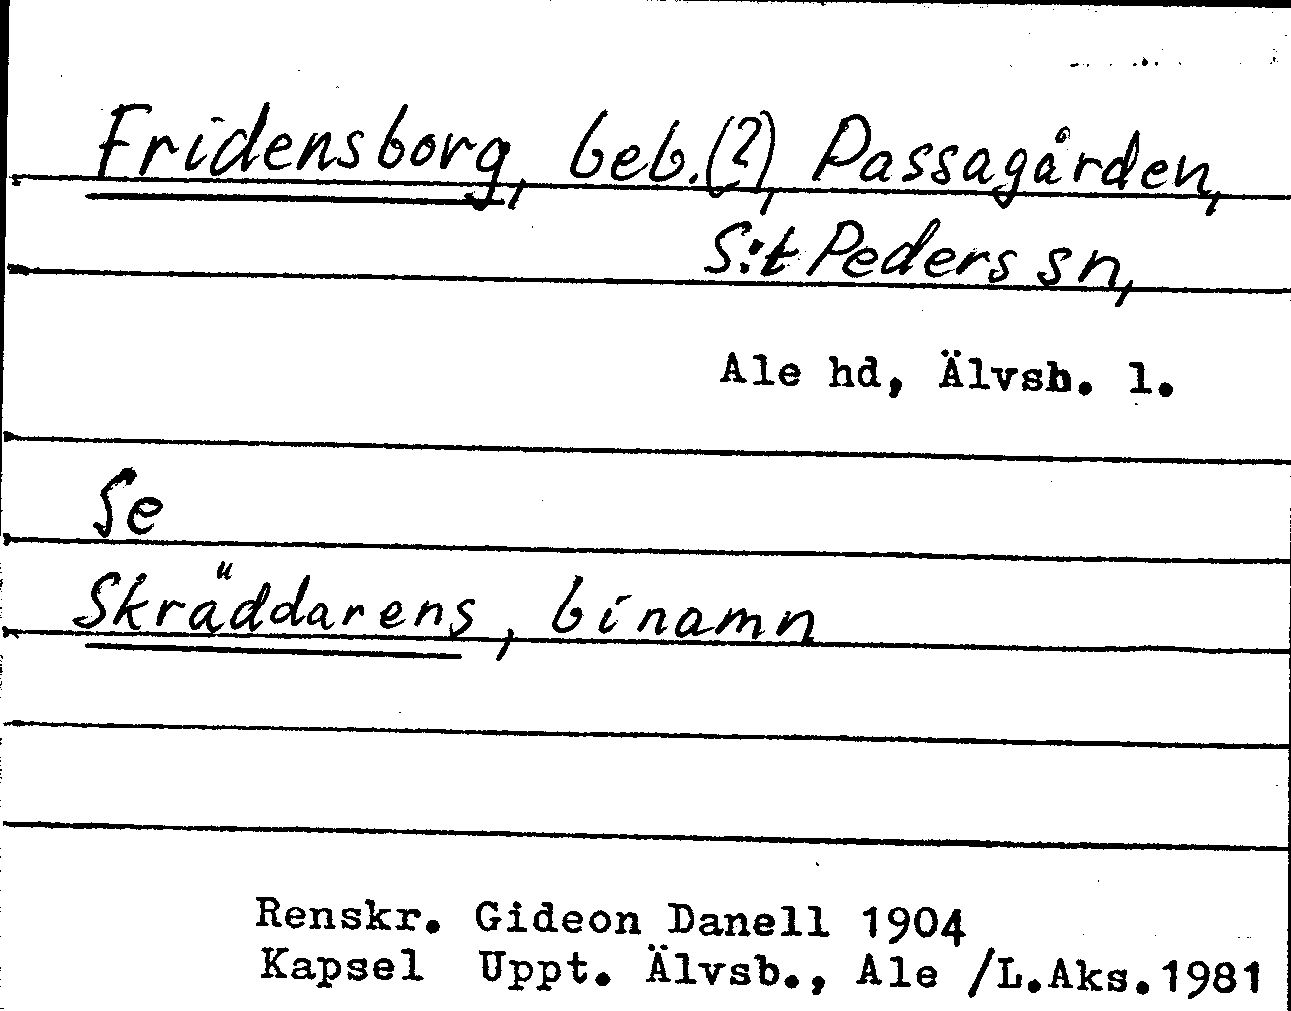 Fridensborg, beb.(?), Passagården,
S:t Peders sn,
Ale hd, Älvsb. l.
Se
Skräddarens, binamn
Renskr. Gideon Danell 1904
Kapsel Uppt. Älvsb., Ale /L.Aks.1981